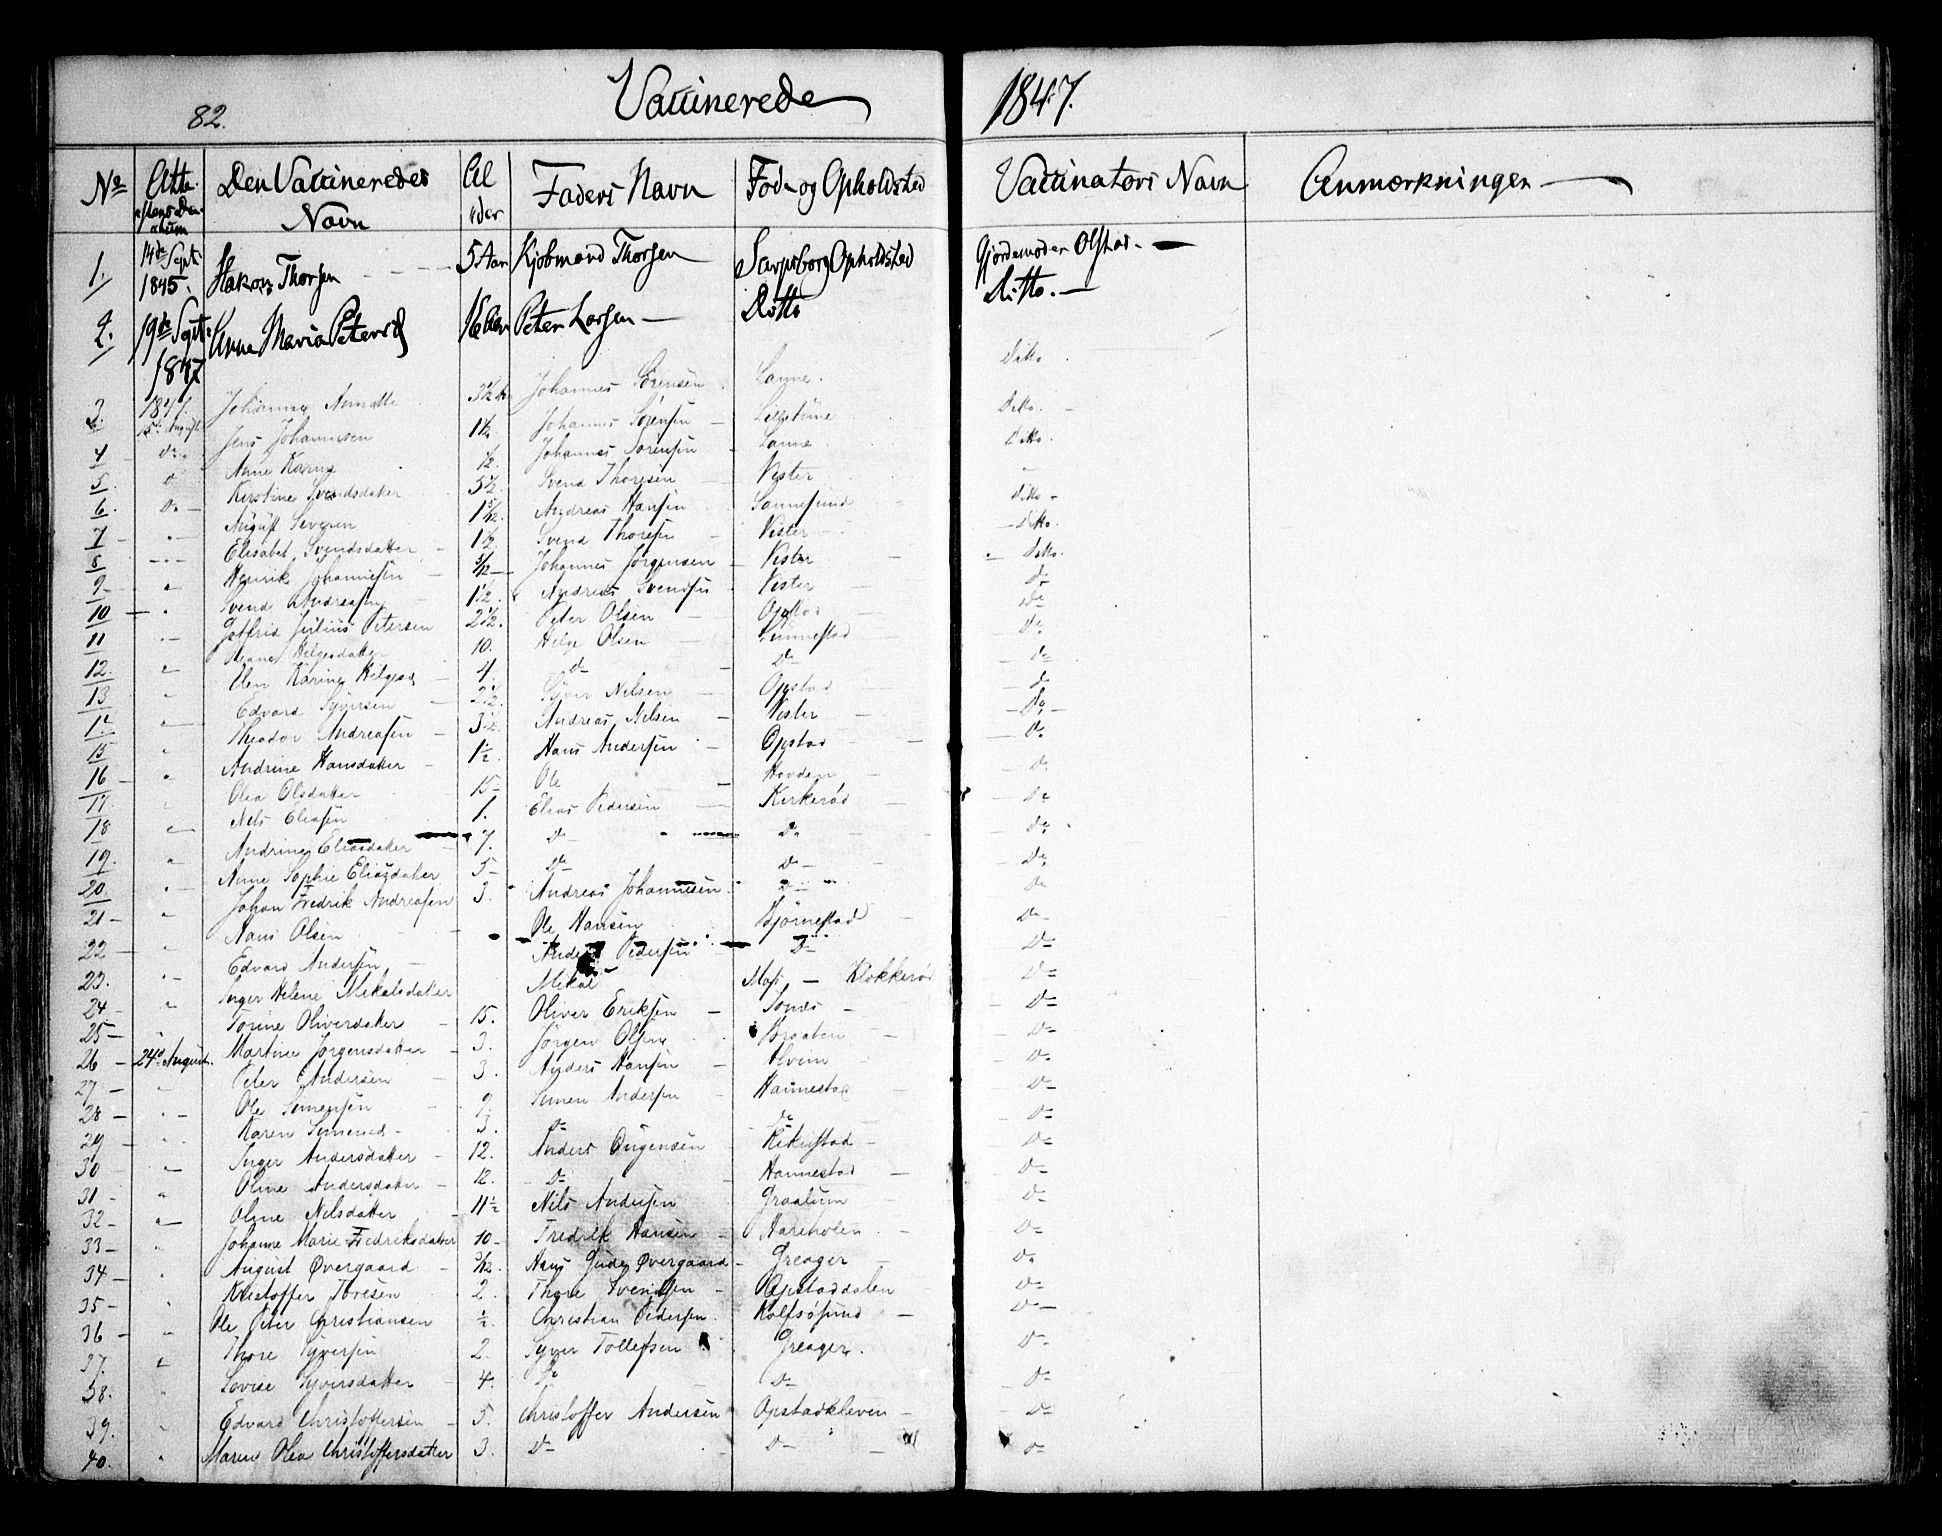 82. Vaccinerede 1847.
No Atte- stens Da- atum Den Vaccineredes Navn Al der Faders Navn Føde og Opholdsted Vaccinators Navn Anmærkninger
1. 14de Sept. 1845. Hakon Thorsen 5 Aar Kjøbmand Thorsen Sarpsborg Opholdsted Gjordemoder Olstad
2. 19de Sept. 1847 Anne Maria Petersd 16 Aar Peter Larsen Ditto Ditto.
3. 1847. 15de August Johanne Annette 3½ Johannes Sørensen Sanne. Ditto
4 do. Jens Johannesen 1½ Johannes Sørensen Ditto.
5. Anne Karine ½. Johannes Sørensen Sanne Ditto.
6. Do Kirstine Svendsdatter 5½. Svend Thoresen Vister "
7 August Severin 1 5/12. Andreas Hansen Sannesund Ditto
8 Elisabet Svendsdatter 1½. Svend Thoresen Vister Ditto.
9 " Henrik Johannesen 5/12 Johannes Jørgensen Vister Ditto.
10 Svend Andreasen 1½. Andreas Svendsen Vister Do
11 Gothrid Julius Petersen 2½. Peter Olsen Opstad Do
12. " Helgesdatter 10. Helge Olsen Do
13 Karine Helgesd 4. Do Do Do
14 Edvard Syversen 2½. Syver Nilsen Opstad Do
15 Theodor Andreasen 3½. Andreas Nilsen Vister Do
16 " Andrine Hansdatter 1½. Hans Andersen Opstad Do
17. Olea Olsdatter 15 Ole Hovden Do
18 Nils Eliasen 1. Elias Pedersen Kirkerød Do
19. " Andrine Eliasdatter 7. Do Do Do
20. Anne Sophie Eliasdatter 5 Do Do Do
21 " Johan Fredrik Andreasen 3. Andreas Johannesen Do Do
22 Hans Olsen Ole Hansen Bjørnestad Do
23. Edvard Andersen Anders Pedersen Do Do
24 " Inger Helene Mikalsdatter Mikal Klokkerød Do
25 Torine Oliverdatter 15. Oliver Eriksen Do
26 24de August. Martine Jørgensdatter 3. Jørgen Olsen Braaten Do
27 Peter Andersen 3. Anders Hansen Do
28 Ole Simensen Simen Andersen Hannestad Do
29 Karen Simensd 3. Do Do Do
30 Inger Andersdatter 12. Anders Do
31 " Oline Andersdatter 12. Do Hannestad Do
32 " Oline Nilsdatter 11½ Nils Andersen Graalum Do
33 Johanne Marie Fredriksdatter 10 Fredrik Hansen Hareholen Do
34 August Øvergaard Hans Gude Øvergaard Greager Do
35 Kristoffer Toresen 2. Thore Svendsen Opstaddalen Do
36 Ole Peter Christiansen ½. Christian Pedersen. Rolfsøsund Do
37. " Thore Syversen 2. Syver Tollefsen Greager. Do
38. Lovise Syversdatter 4. Do Do Do
39. Edvard Christoffersen 5. Christoffer Andersen Opstadkleven Do
40. Maren Olea Christoffersdatter 3. Do Do Do